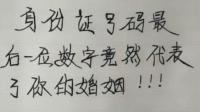 身份证号码最
后一位数字竟然代表
了你的婚姻!!!